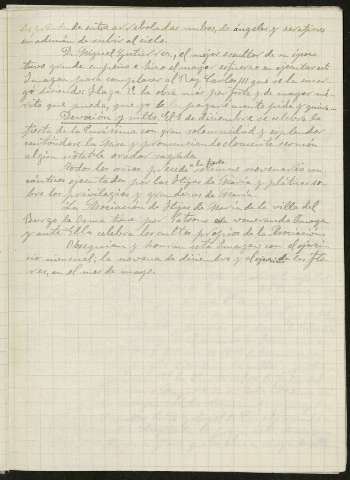 de entre arreboladas nubes, de ángeles y serafines
en ademán de subir al cielo.
D. Miguel Gutierrez, el mejor escultor de su época
tuvo grande empeño e hizo el mejor esfuerzo en ejecutar esta
Imagen para complacer al Rey Carlos III que se la encar-
gó diciendo: Haga V. la obra más perfecta y de mayor mé-
rito que pueda, que yo le pagaré cuanto pida y quiera.
Devoción y culto. El 8 de diciembre se celebra la
fiesta de la Purísima con gran solemnidad y esplendor
cantándose la Misa y pronunciando elocuente sermón
algún notable orador sagrado.
Todos los años precede a la fiesta solemne novenario con
cánticos ejecutados por las Hijas de María y pláticas so-
bre los privilegios y grandezas de María.
La Asociación de Hijas de María de la villa del
Burgo de Osma tiene por Patrona a la veneranda Imagen
y ante Ella celebra los cultos propios de la Asociación
Obsequian y honran esta Imagen con el ejerci-
cio mensual; la novena de diciembre y el ejercicio de las flo-
res, en el mes de mayo.